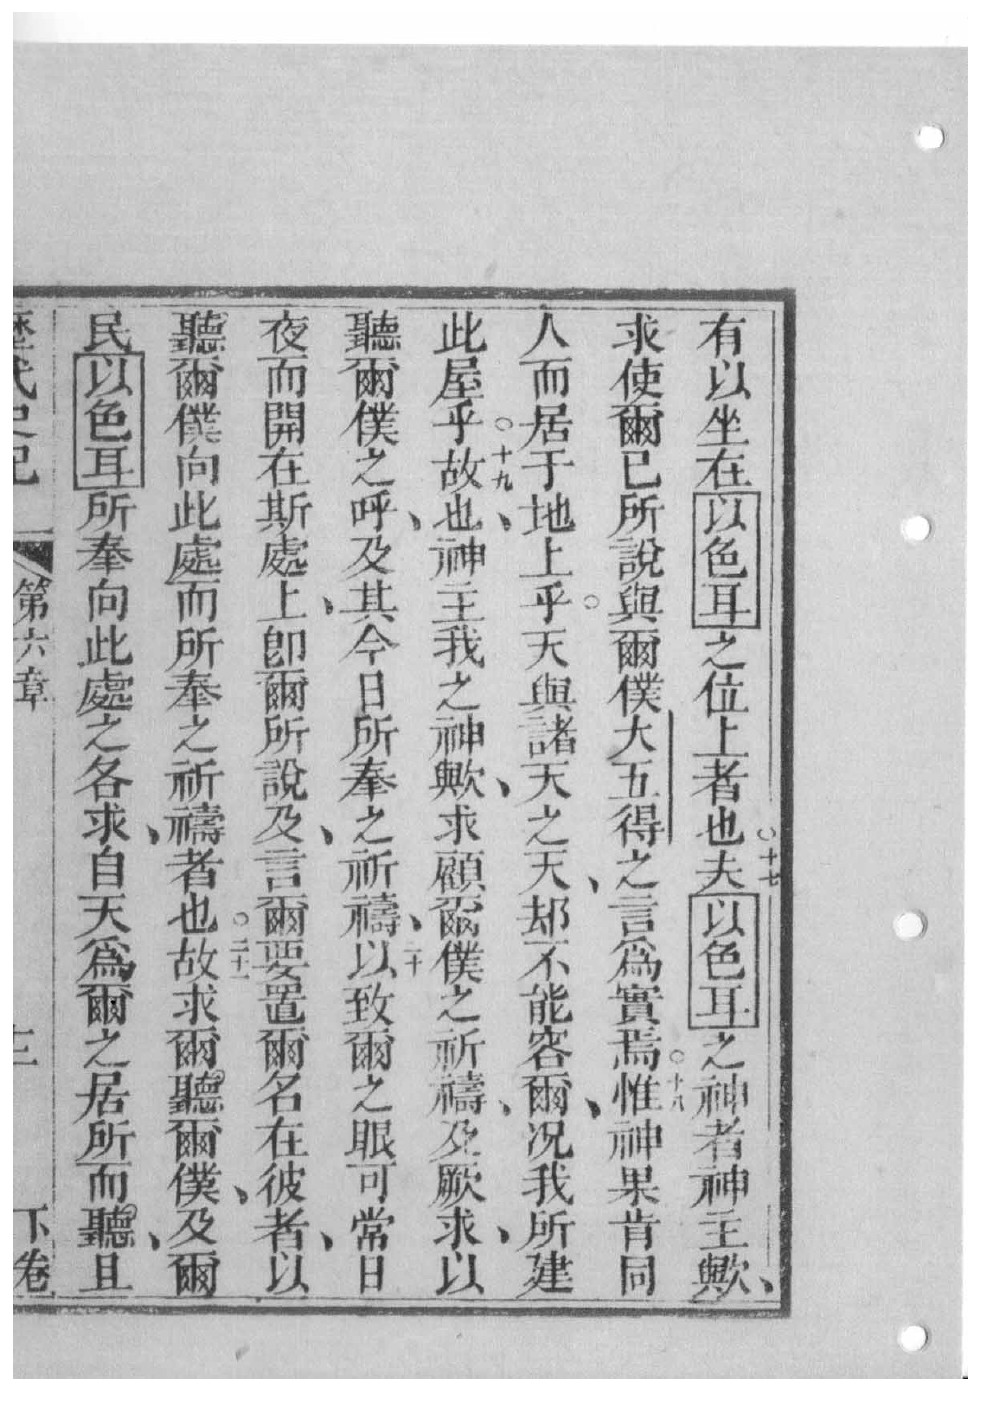 有以坐在以色耳之位上者也○十七夫以色耳之神者神主歟、
求使爾已所說與爾僕大五得之言爲實焉○十八惟神果肯同
人而居于地上乎○天與諸天之天、却不能容爾、况我所建
此屋乎○十九故也、神主我之神歟、求顧爾僕之祈禱、及厥求、以
聽爾僕之呼、及其今日所奉之祈禱、二十以致爾之眼可常日
夜而開在斯處上、卽爾所說、及言爾要置爾名在彼者、以
聽爾僕向此處而所奉之祈禱者也○二十一故求爾聽爾僕、及爾
民以色耳所奉向此處之各求、自天爲爾之居所而聽、且
歷代史記一 第六章 三 下卷